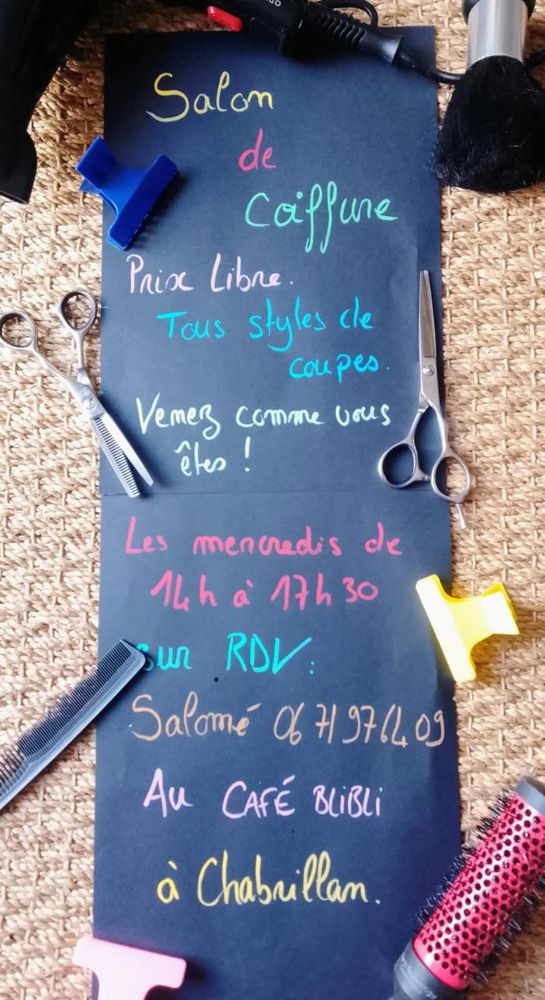 Salon
de
Coiffure
Prix Libre.
Tous styles de
coupes.
Venez comme vous
êtes !
Les mercredis de
14h à 17h30
sur RDV :
Salomé 06 71 97 64 09
Au CAFÉ BLIBLI
à Chabrillan.